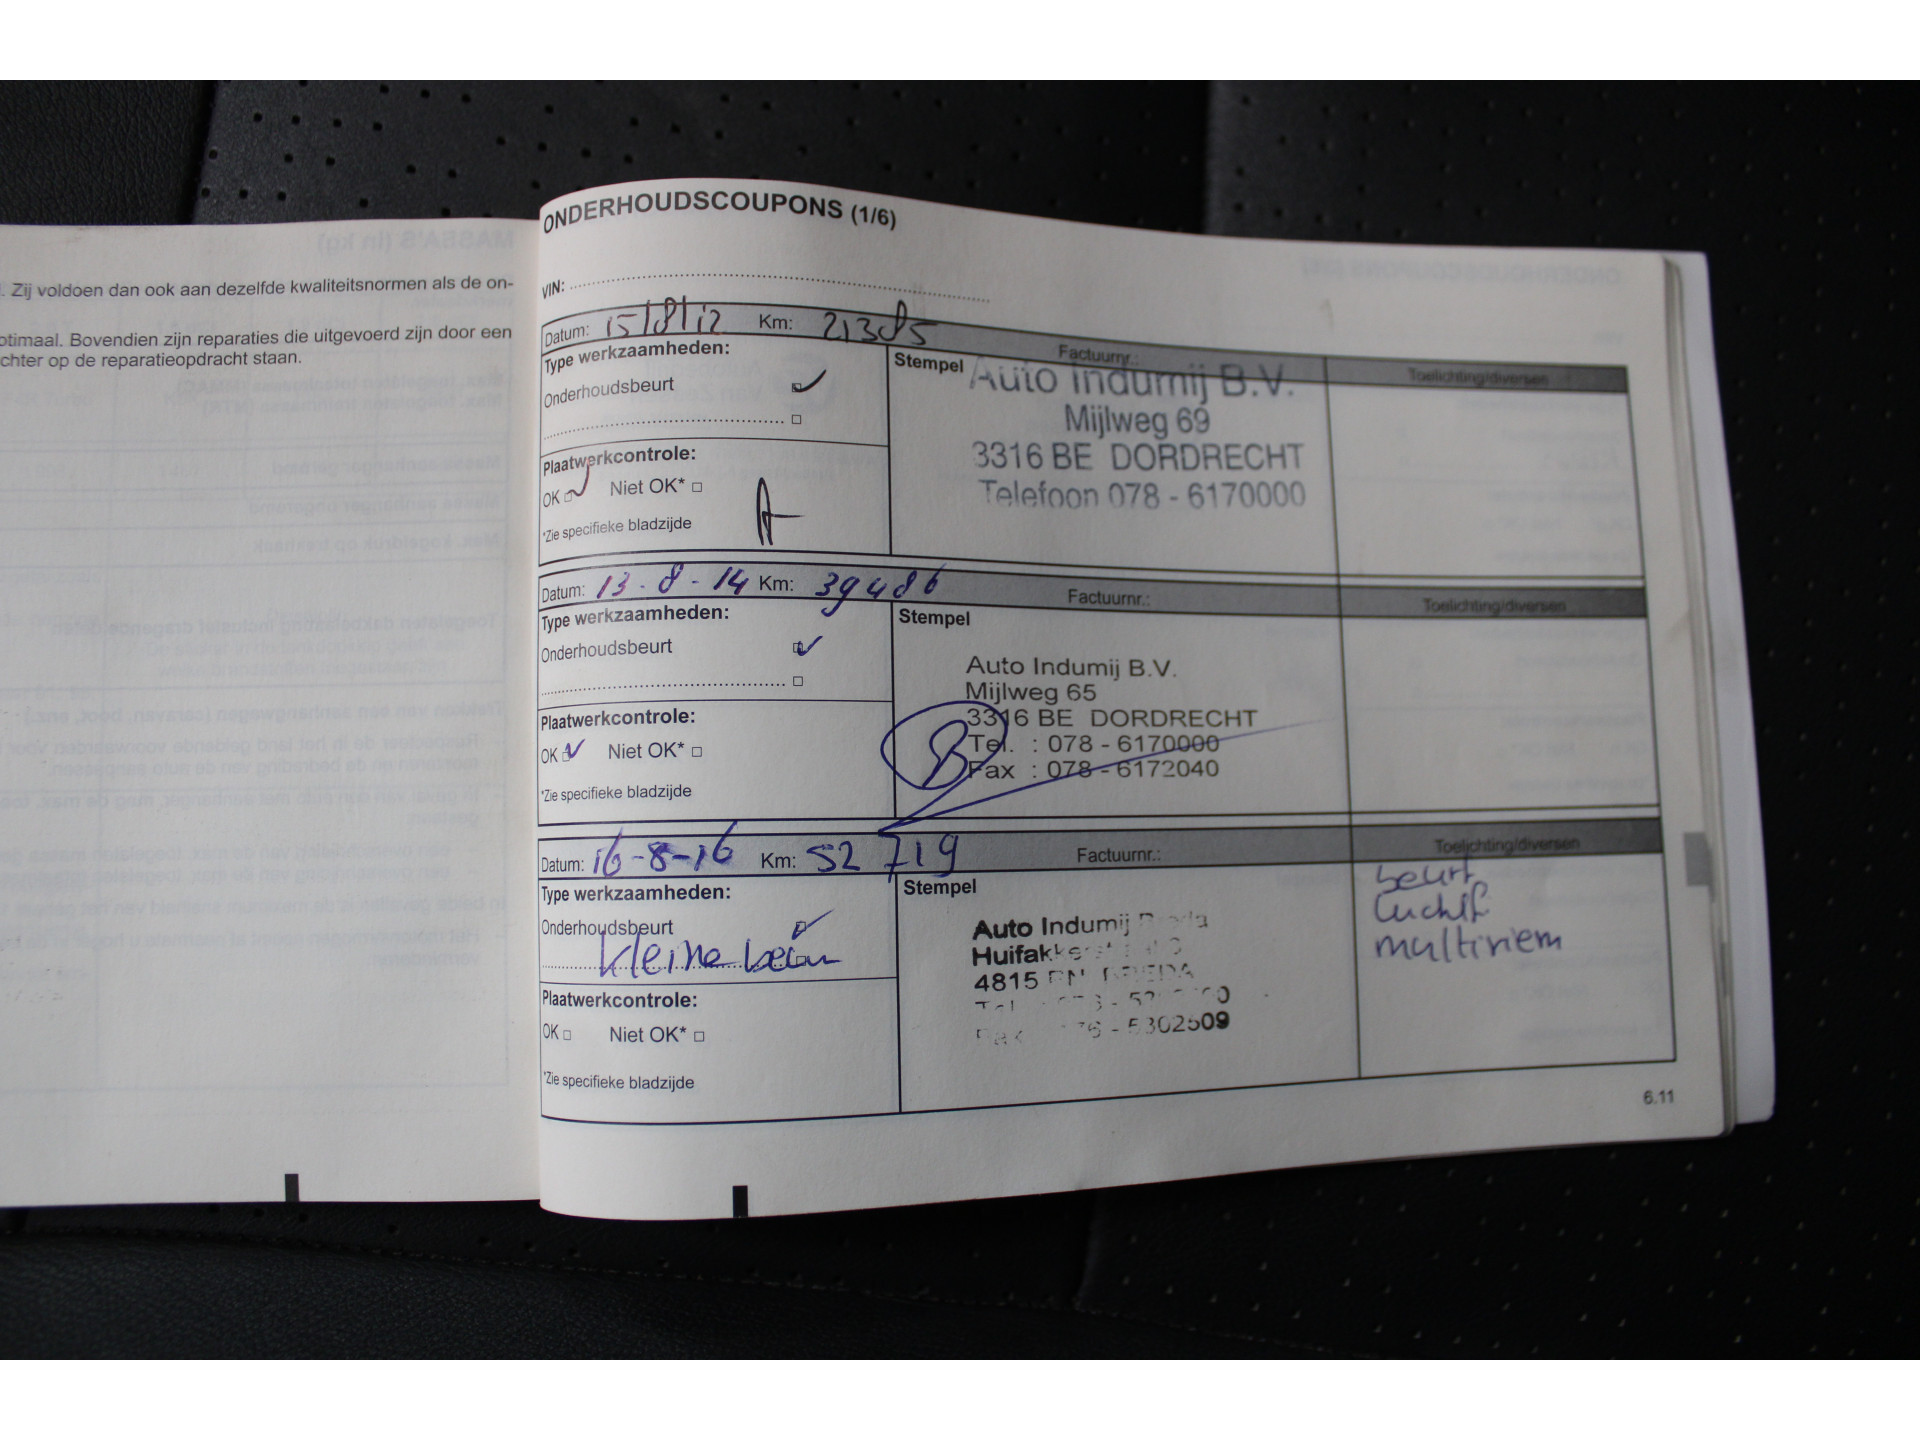 . Zij voldoen dan ook aan dezelfde kwaliteitsnormen als de on-
ptimaal. Bovendien zijn reparaties die uitgevoerd zijn door een
chter op de reparatieopdracht staan.
ONDERHOUDSCOUPONS (1/6)
VIN:
Datum: 15/8/12 Km: 21385 Factuurnr.: Toelichting/diversen
Type werkzaamheden:
Onderhoudsbeurt
Plaatwerkcontrole:
OK Niet OK*
*Zie specifieke bladzijde
A
Stempel
Auto Indumij B.V.
Mijlweg 69
3316 BE DORDRECHT
Telefoon 078 - 6170000
Datum: 13-8-14 Km: 39486 Factuurnr.: Toelichting/diversen
Type werkzaamheden:
Onderhoudsbeurt
Plaatwerkcontrole:
OK Niet OK*
*Zie specifieke bladzijde
Stempel
Auto Indumij B.V.
Mijlweg 65
3316 BE DORDRECHT
Tel. : 078 - 6170000
Fax : 078 - 6172040
B
Datum: 16-8-16 Km: 52719 Factuurnr.: Toelichting/diversen
Type werkzaamheden:
Onderhoudsbeurt
kleine beurt
Plaatwerkcontrole:
OK Niet OK*
*Zie specifieke bladzijde
Stempel
Auto Indumij Breda
4815
- 5302509
beurt
luchtf
multiriem
6.11